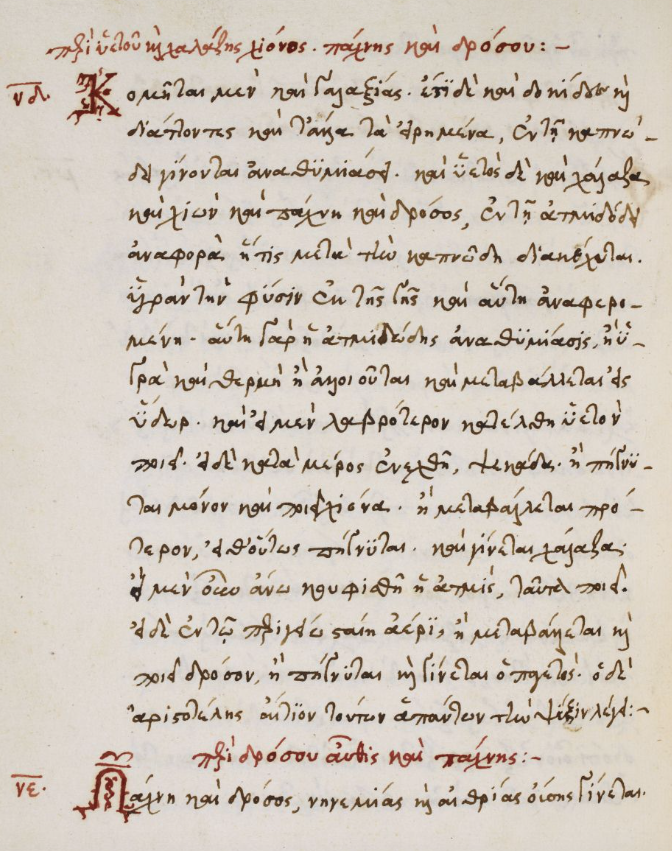 περὶ ὑετοῦ καὶ χαλάζης χιόνος· πάχνης καὶ δρόσου:-
νδ. Κομῆται μὲν καὶ γαλαξίας· ἔτι δὲ καὶ δοκίδες καὶ
διάττοντες καὶ τἄλλα τὰ εἰρημένα, ἐν τῇ καπνώ-
δει γίνονται ἀναθυμιάσει· καὶ ὑετὸς δὲ καὶ χάλαζα
καὶ χιὼν καὶ πάχνη καὶ δρόσος, ἐν τῇ ἀτμιδώδει
ἀναφορᾷ ἥτις μετὰ τὴν καπνώδη
ὑγρὰν τὴν φύσιν ἐκ τῆς γῆς καὶ αὕτη ἀναφερο-
μένη· αὕτη γὰρ ἡ ἀτμιδώδης ἀναθυμίασις, ἡ ὑ-
γρὰ καὶ θερμὴ ἢ ἀλλοιοῦται καὶ μεταβάλλεται εἰς
ὕδωρ· καὶ εἰ μὲν λαβρότερον κατέλθῃ ὑετὸν
ποιεῖ· εἰ δὲ κατὰ μέρος ἐνεχθῇ, ψεκάδας· ἢ πήγνυ-
ται μόνον καὶ ποιεῖ χιόνα· ἢ μεταβάλλεται πρό-
τερον, εἶθ' οὕτως πήγνυται· καὶ γίνεται χάλαζα·
εἰ μὲν οὖν ἄνω κουφισθῇ ἡ ἀτμίς, ταῦτα ποιεῖ.
εἰ δὲ ἐν τῷ περιγείῳ σταίη ἀέρι, ἢ μεταβάλλεται καὶ
ποιεῖ δρόσον, ἢ πήγνυται καὶ γίνεται ὁ παγετός· ὁ δὲ
ἀριστοτέλης αἴτιον τούτων ἁπάντων τὴν ψύξιν λέγει:-
περὶ δρόσου αὖθις καὶ πάχνης:-
νε. Πάχνη καὶ δρόσος, νηνεμίας καὶ αἰθρίας οὔσης γίνεται.